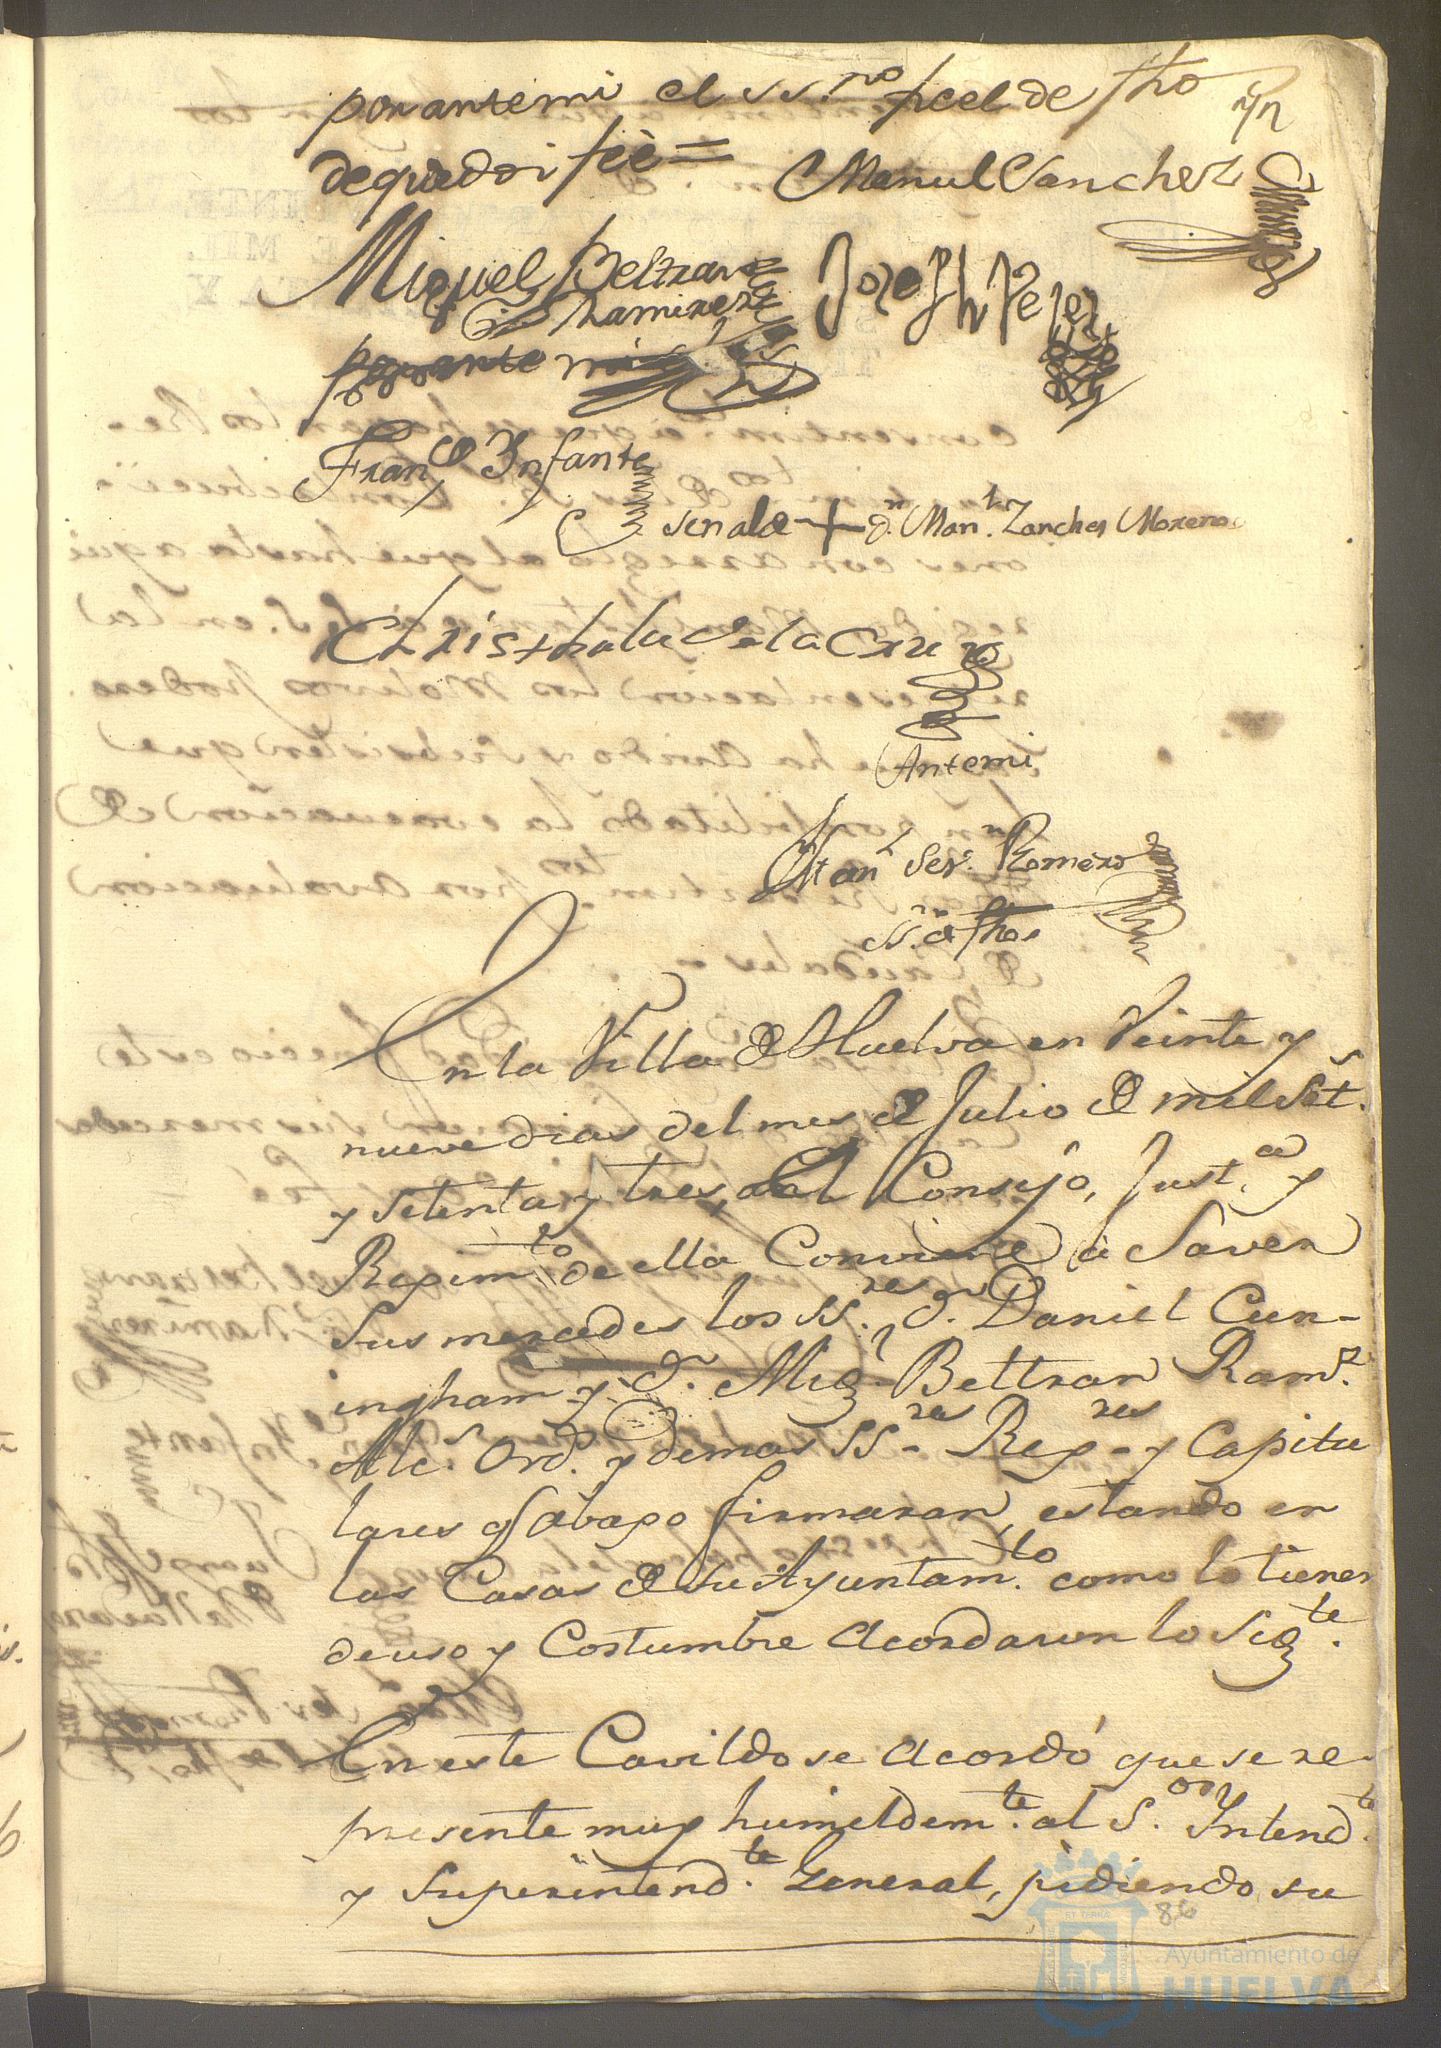 por antemi el ss.no fiel de fho
de que doi feè =
Manuel Sanchez
Miguel Beltran
Ramirez
Joseph Perez
por ante mi
Fran.co Ynfante
Señal de + d.n Man.l Zanches Moreno
Christobal de la Cruz
Antemi
Man.l Ser.n Romero
ss.no de fho.
En la Villa de Huelva en Veinte y
nueve dias del mes de Julio de mil Set.s
y Setenta y tres, el Consejo, Just.cia y
Regim.to de ella Conviene à Saver
Sus mercedes los SS.res d.n Daniel Cun-
ingham y d.n Mig.l Beltran Ram.z
Alc.s Ord.s y demas SS.res Reg.res y Capitu
lares q abajo firmaran, estando en
las Casas de su Ayuntam.to como lo tienen
de uso y Costumbre Acordaron lo Sig.te
En este Cavildo se Acordó que se re-
presente muy humildem.te al S.or Yntend.te
y Superintend.te General, pidiendo su
86
Ayuntamiento de
HUELVA